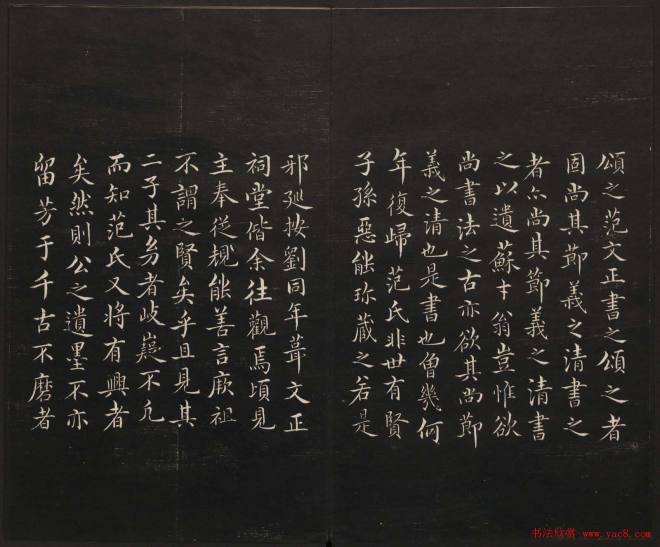 頌之范文正書之頌之者
固尚其節義之清書之
者亦尚其節義之清書
之以遺蘇才翁豈惟欲
尚書法之古亦欲其尚節
義之清也是書也曾幾何
年復歸范氏非世有賢
子孫惡能珎藏之若是
邪廵按劉同年葺文正
祠堂偕余往觀焉頃見
主奉従規能善言厥祖
不謂之賢矣乎且見其
二子其㓜者岐嶷不凡
而知范氏又將有興者
矣然則公之遺墨不亦
留芳于千古不磨者
书法欣赏 www.yac8.com